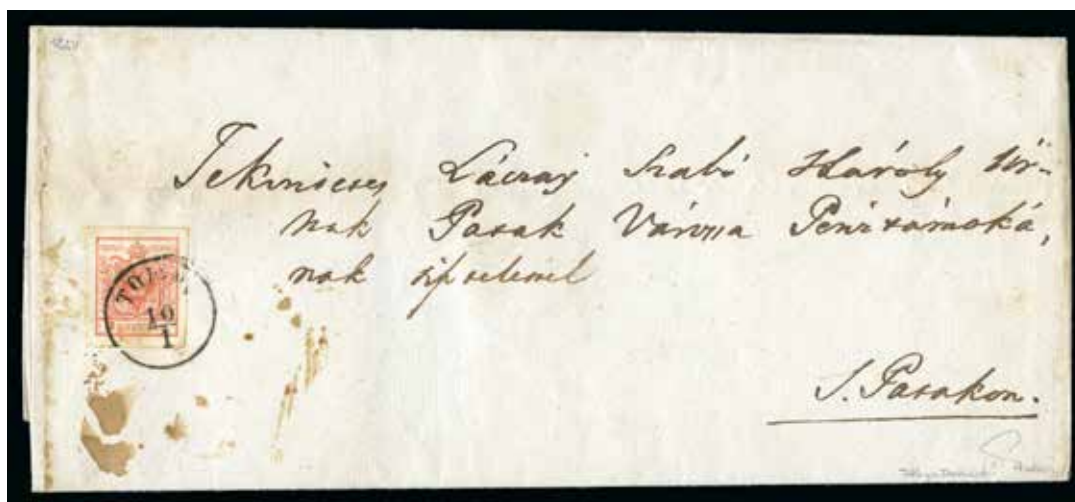 Tekintetes Láczay Szabó Károly Úr-
nak Patak Várossa Pénztárnoká,
nak tisztelettel
S. Patakon.
TO
19
1